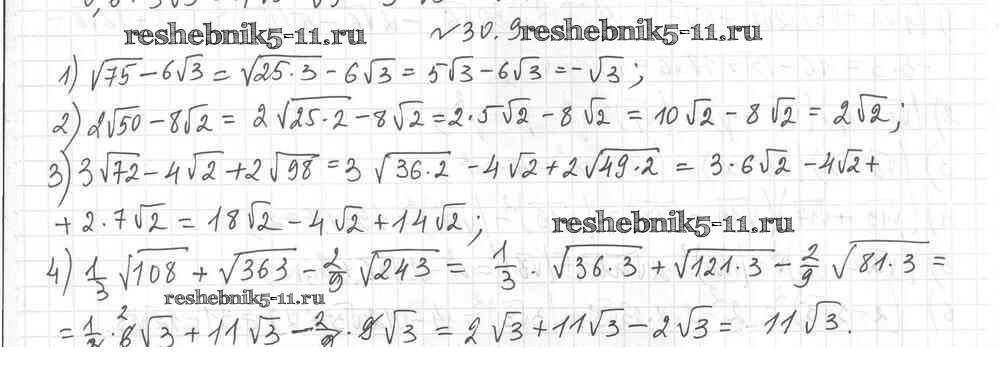 reshebnik5-11.ru №30.9 reshebnik5-11.ru
1) √75 − 6√3 = √25·3 − 6√3 = 5√3 − 6√3 = −√3;
2) 2√50 − 8√2 = 2√25·2 − 8√2 = 2·5√2 − 8√2 = 10√2 − 8√2 = 2√2;
3) 3√72 − 4√2 + 2√98 = 3√36·2 − 4√2 + 2√49·2 = 3·6√2 − 4√2 +
+ 2·7√2 = 18√2 − 4√2 + 14√2;
reshebnik5-11.ru
4) 1/3 √108 + √363 − 2/9 √243 = 1/3 · √36·3 + √121·3 − 2/9 √81·3 =
reshebnik5-11.ru
= 1/3 · 6 2 √3 + 11√3 − 2/9 · 9√3 = 2√3 + 11√3 − 2√3 = 11√3.